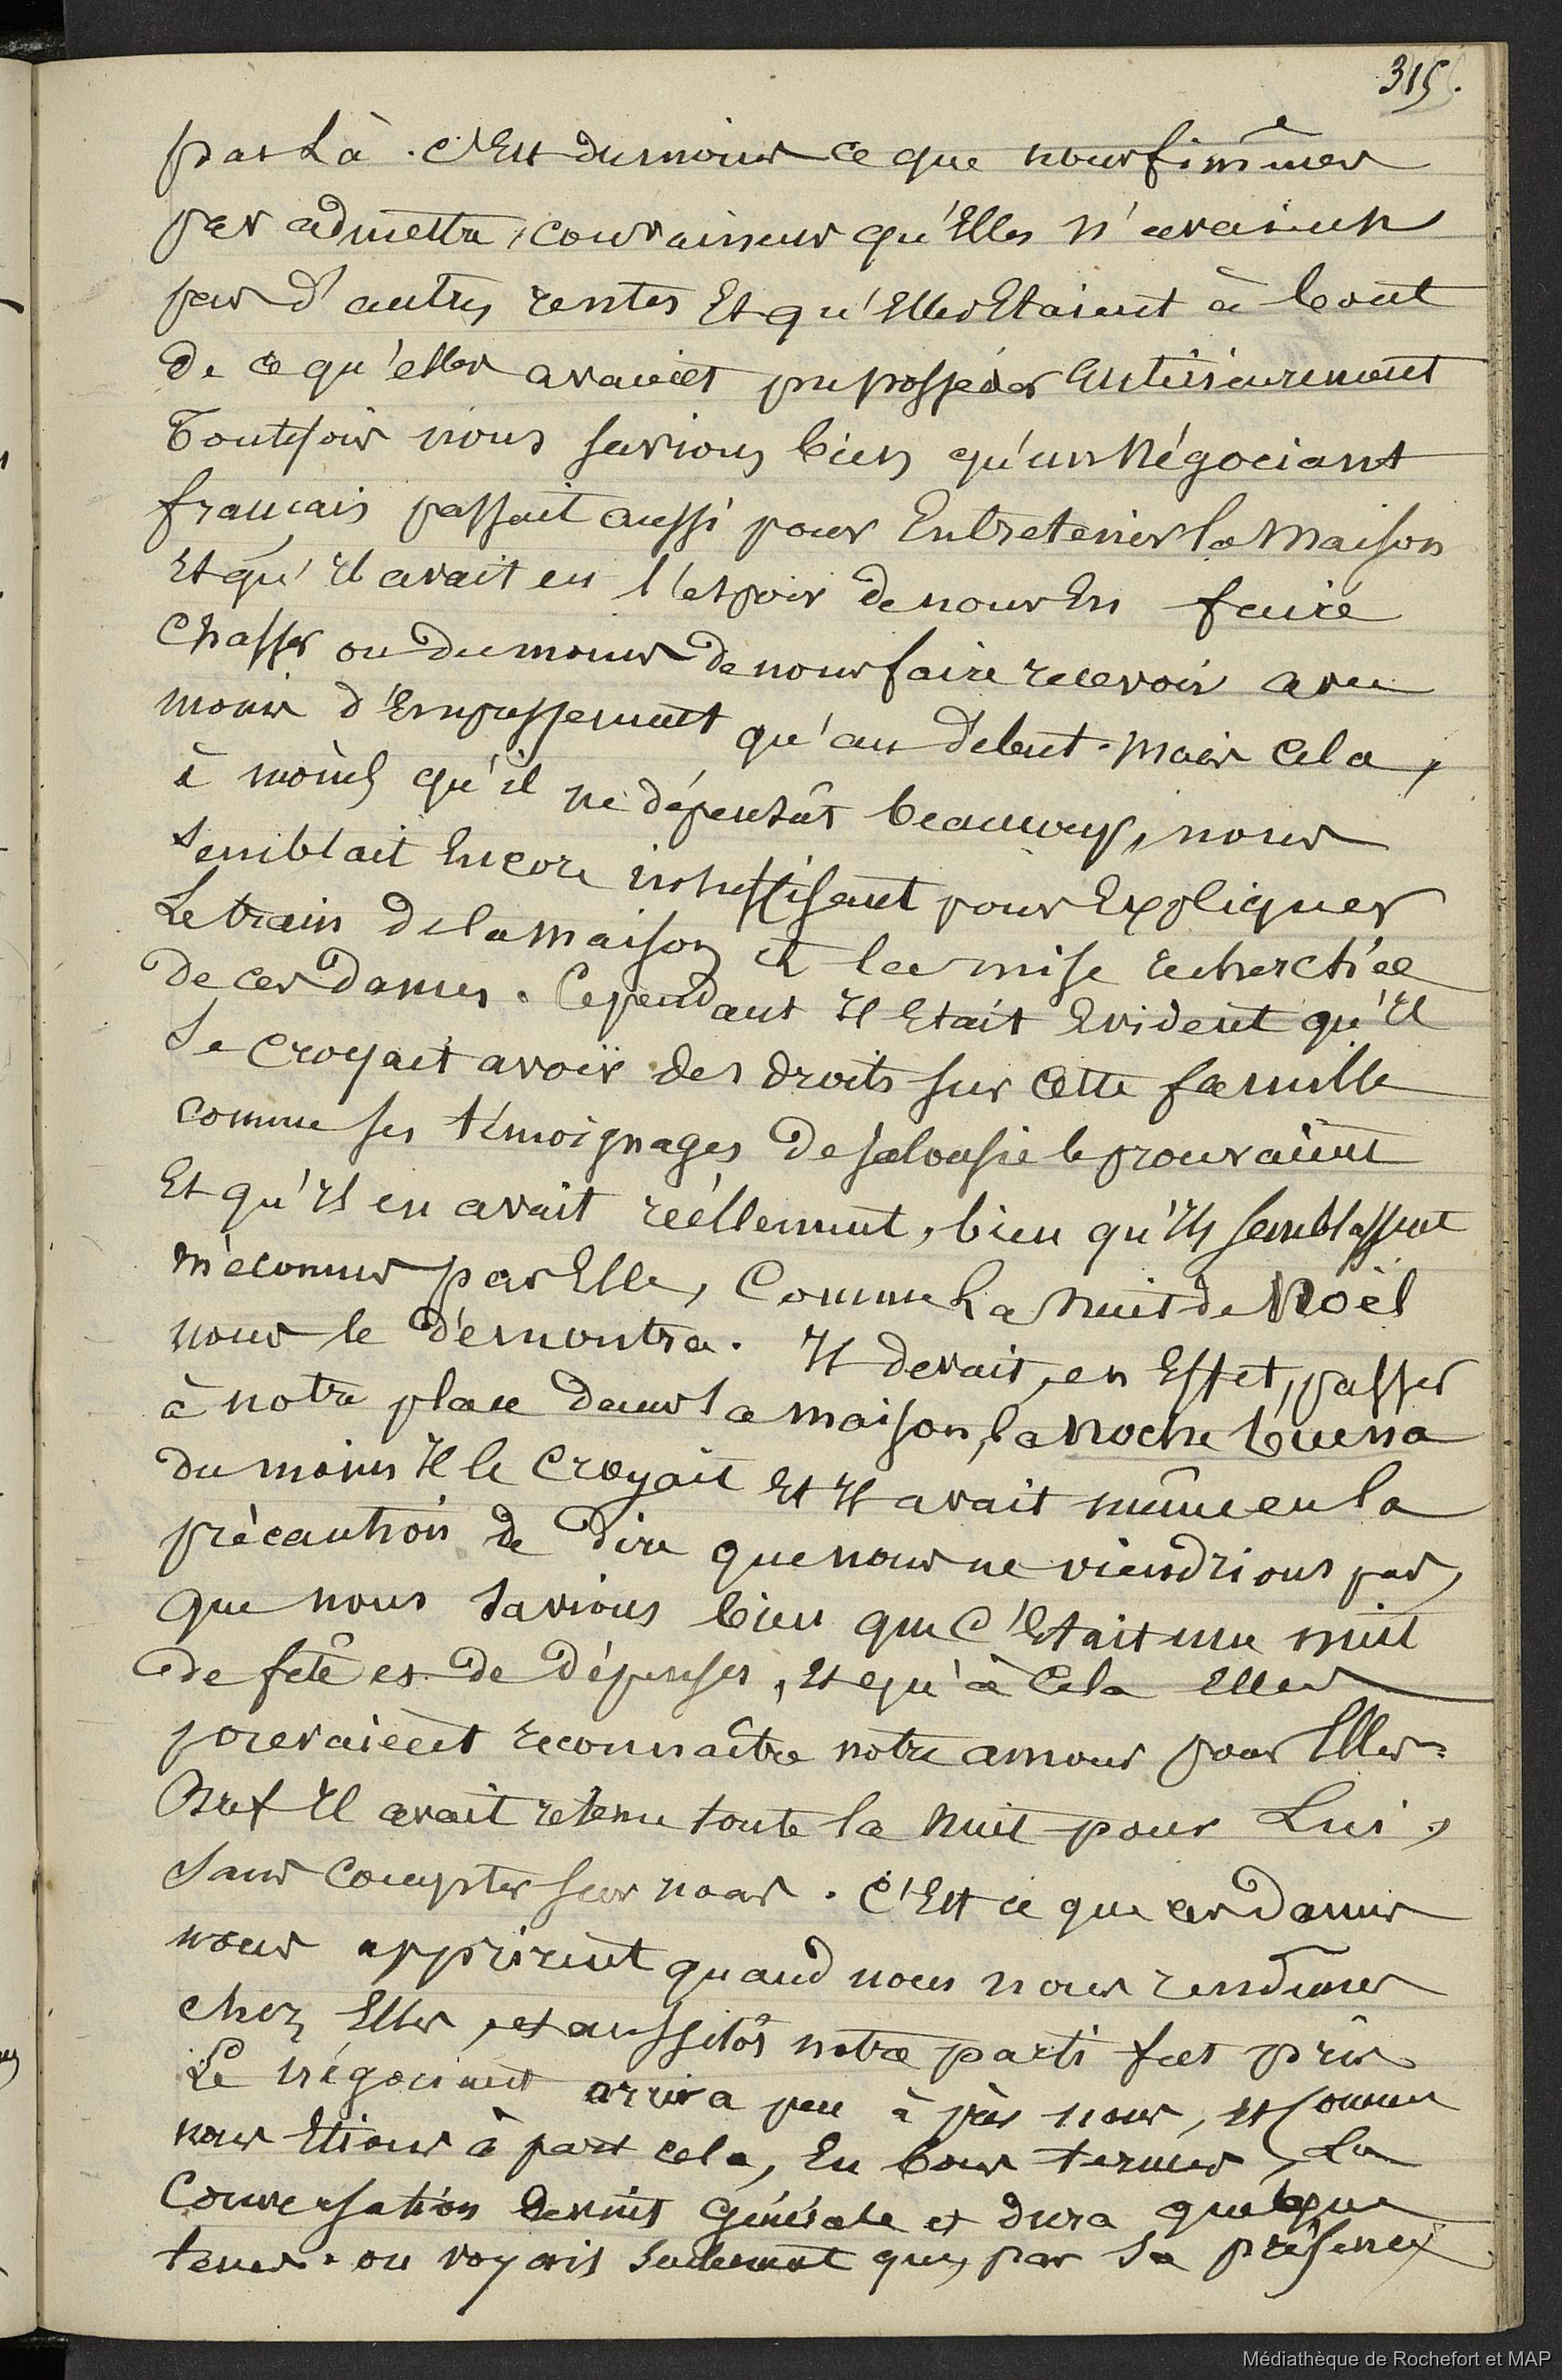 315.
par Là. C'Est du moins ce que nous finîmes
par admettre, convaincus qu'Elles n'avaient
pas d'autres rentes Et qu'Elles Etaient à bout
de ce qu'elles avaient pu posséder antérieurement
Toutefois nous savions bien qu'un Négociant
francais passait aussi pour Entretenir la Maison
Et qu'Il avait eu l'espoir de nous En faire
Chasser ou du moins de nous faire recevoir avec
moins d'Empressement qu'au début. Mais Cela,
à moins qu'il ne dépensât beaucoup, nous
semblait Encore insuffisant pour Expliquer
Le train de la maison et la mise recherchée
de ces Dames. Cependant Il Etait Evident qu'Il
se Croyait avoir des droits sur Cette famille
comme ses témoignages de jalousie le prouvaient
Et qu'Il en avait réellement, bien qu'Ils semblassent
méconnus par Elle, Comme La Nuit de Noël
nous le démontra. Il devait, en Effet, passer
à notre place dans la maison, la Noche buena
du moins Il le Croyait Et Il avait même eu la
précaution de dire que nous ne viendrions pas,
que nous savions bien que C'Etait une nuit
de fête et de dépenses, Et qu'à Cela Elles
pouvaient reconnaître notre amour pour Elles.
Bref Il avait retenu toute la Nuit pour Lui,
sans Compter sur nous. C'Est ce que ces Dames
nous apprirent quand nous nous rendîmes
chez Elles, et aussitôt notre parti fut pris
Le négociant arriva peu après nous, et comme
nous Etions à part cela, En bons termes, La
Conversation devint Générale et dura quelque
temps. on voyait seulement que, par sa présence
Médiathèque de Rochefort et MAP